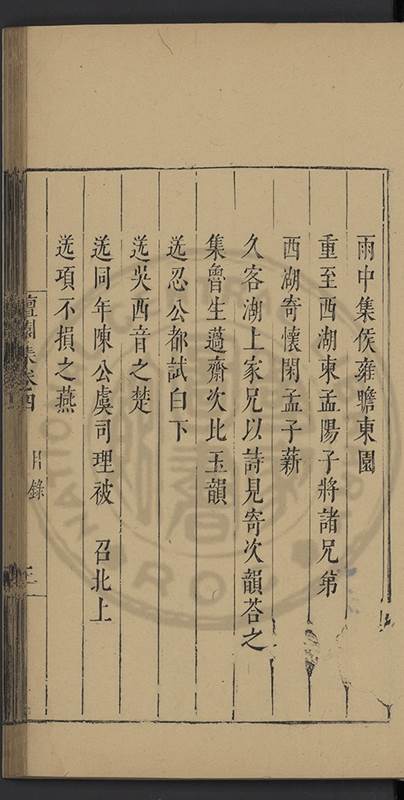 雨中集侯雍瞻東園
重至西湖柬孟陽子將諸兄弟
西湖寄懷閑孟子薪
久客湖上家兄以詩見寄次韻荅之
集魯生薖齋次比玉韻
送忍公都試白下
送吳西音之楚
送同年陳公虞司理被　召北上
送項不損之燕
檀園集卷四　目錄　三